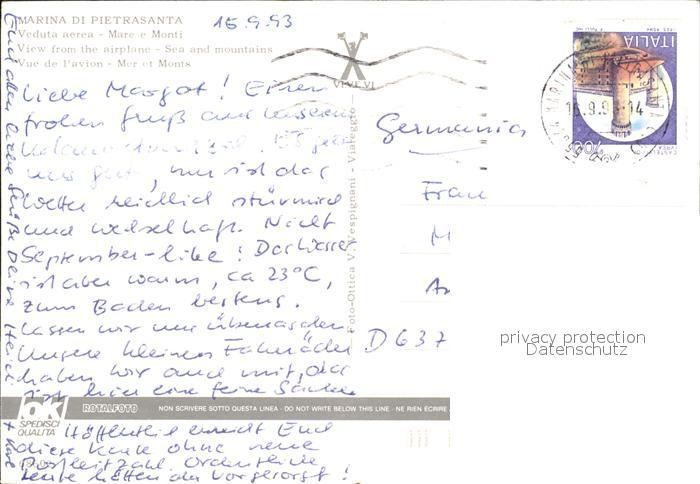 MARINA DI PIETRASANTA
Veduta aerea - Mare e Monti
View from the airplane - Sea and mountains
Vue de l'avion - Mer et Monts
15.9.93
VIVEVI
ITALIA
700
16.9.9 -14
Liebe Margot! Einen
frohen Gruß aus unserem
Uns geht
uns gut, nur ist das
Wetter reichlich stürmisch
und wechselhaft. Nicht
September-like! Das Wasser
ist aber warm, ca 23°C,
zum Baden bestens.
Lassen wir uns überraschen
Unsere kleinen Fahrräder
haben wir auch mit, das
ist hier eine feine Sache.
Hoffentlich erreicht Euch
diese Karte ohne neue
Postleitzahl. Ordentliche
Leute hätten da vorgesorgt!
Und allen liebe Grüße Deine Heidi
+ Karl
Foto-Ottica V. Vespignani - Viareggio
Germania
Frau
M
An
D 637
privacy protection
Datenschutz
ok
SPEDISCI
QUALITÀ
ROTALFOTO
NON SCRIVERE SOTTO QUESTA LINEA - DO NOT WRITE BELOW THIS LINE - NE RIEN ÉCRIRE